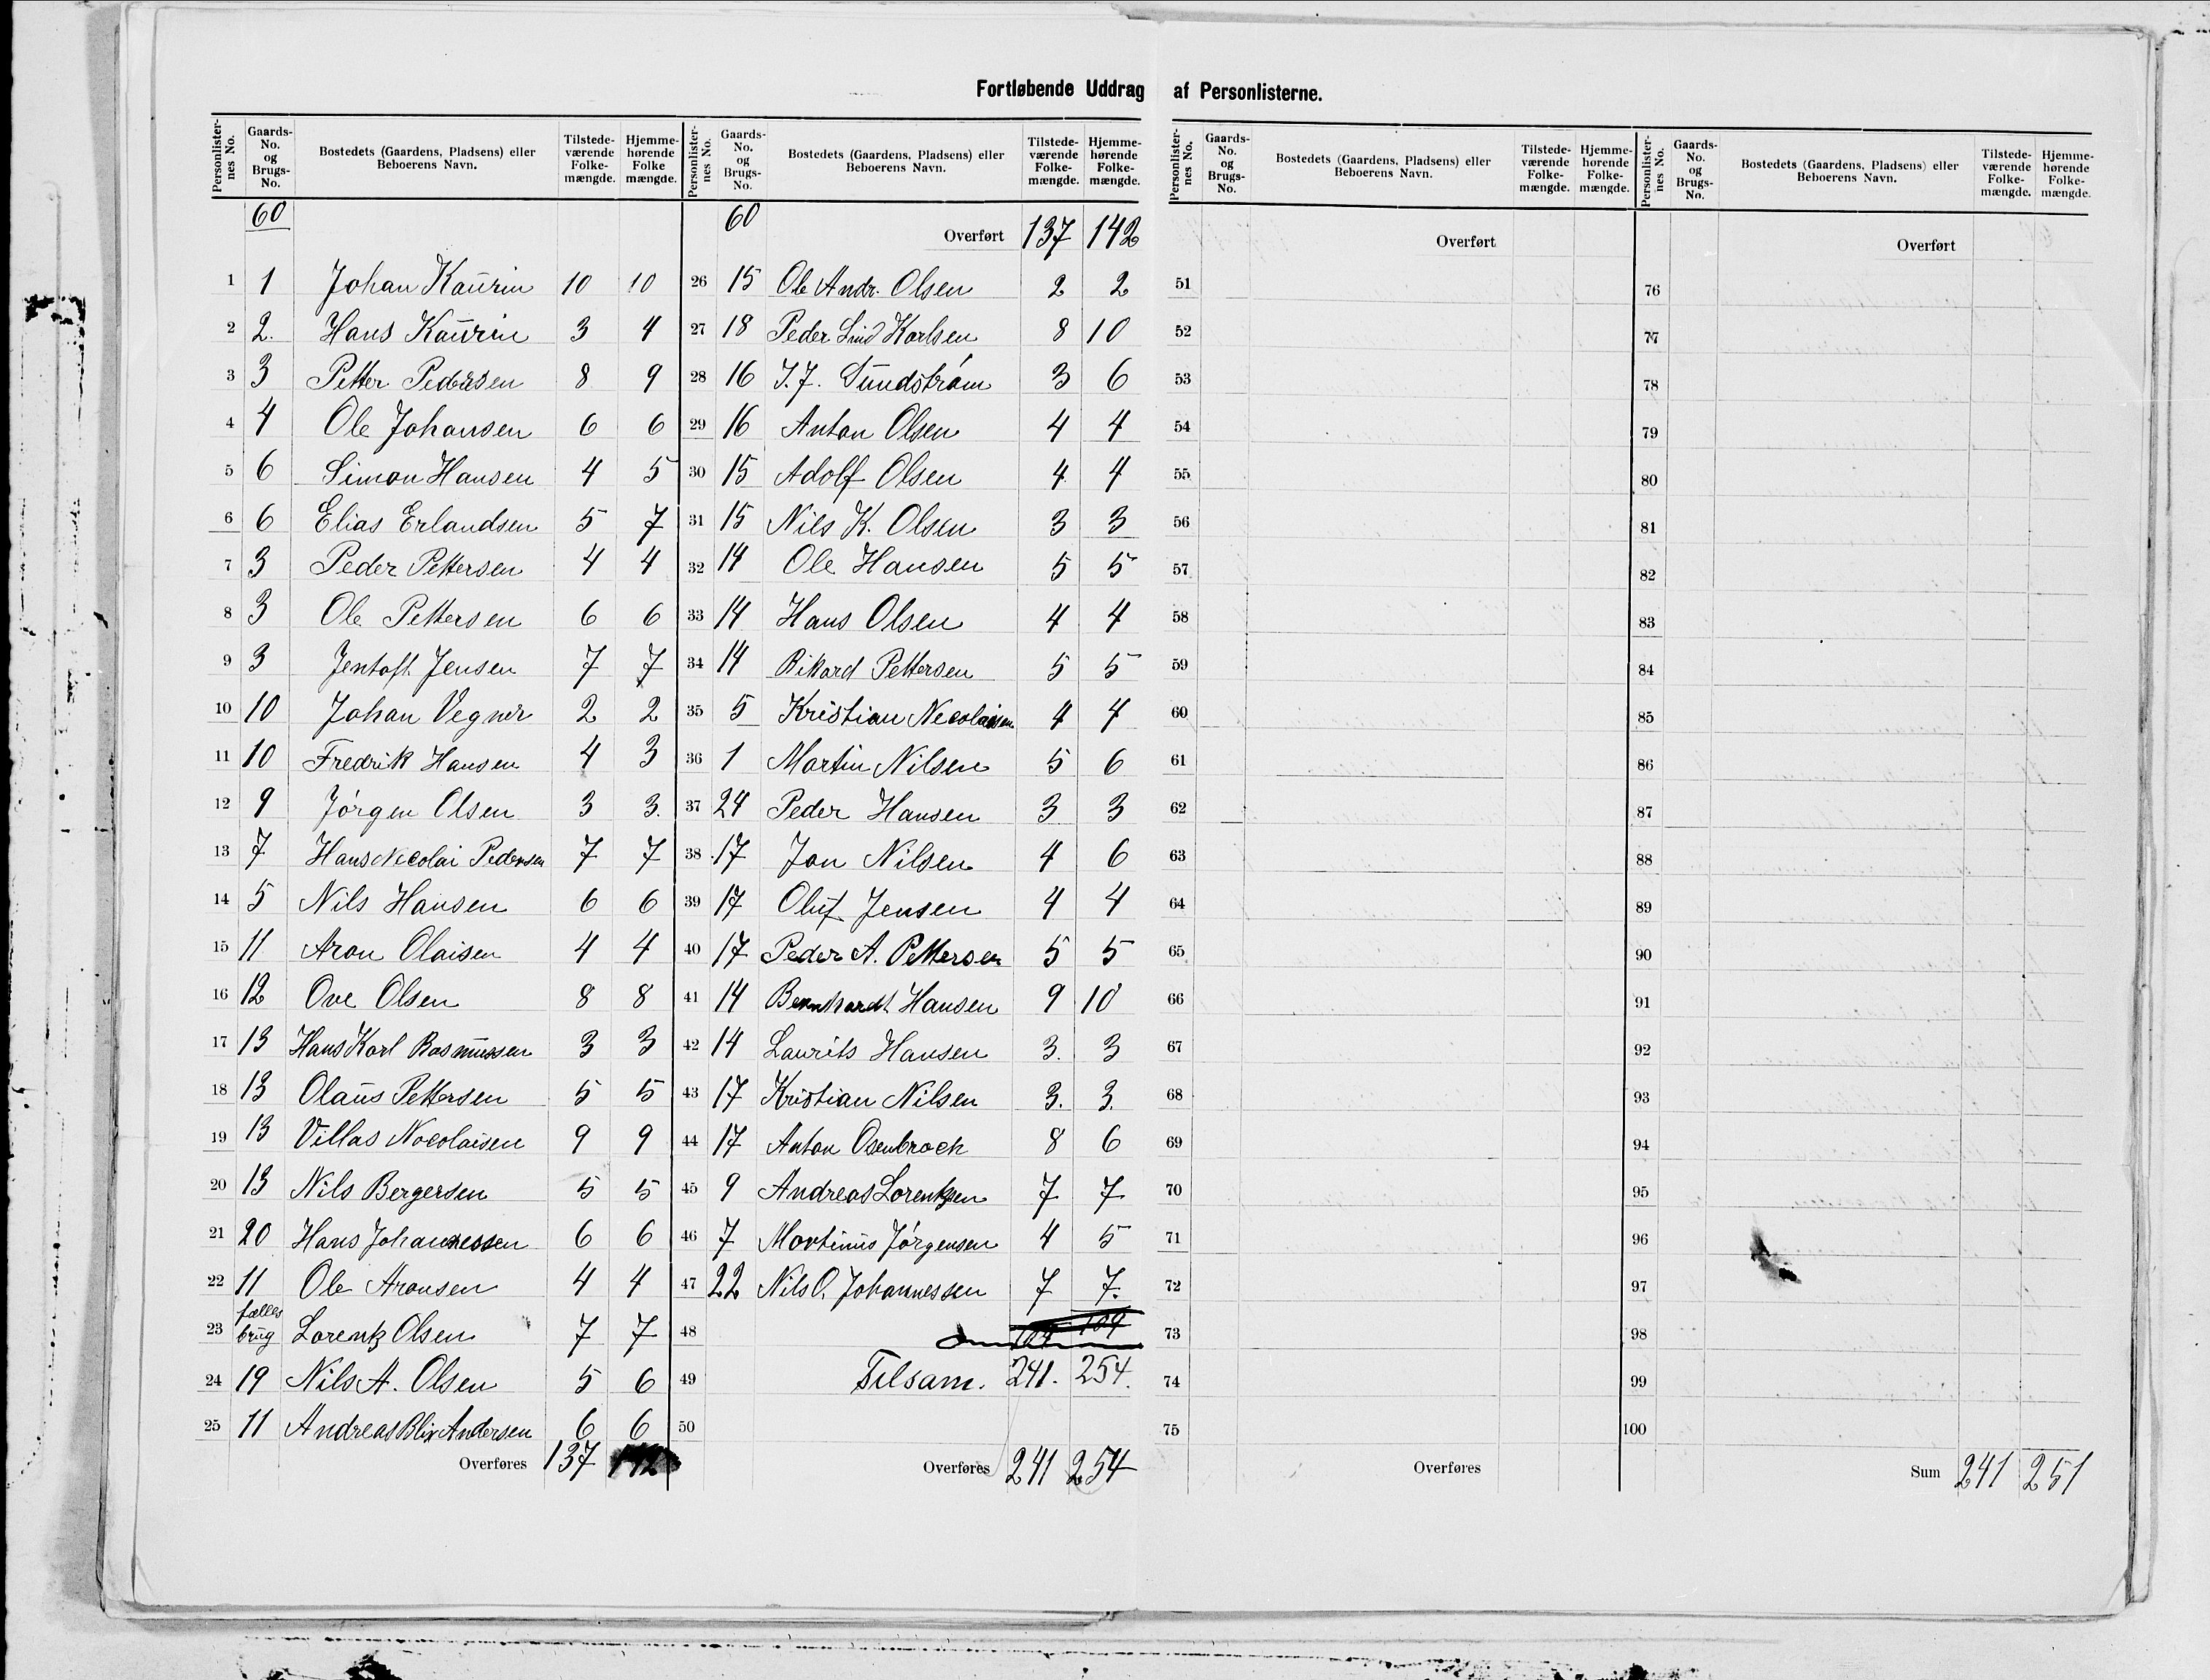 Fortløbende Uddrag af Personlisterne.
Personlisternes No. Gaards-No. og Brugs-No. Bostedets (Gaardens, Pladsens) eller Beboerens Navn. Tilstedeværende Folkemængde. Hjemmehørende Folke mængde.
60
1 1 Johan Kaurin 10 10
2 2. Hans Kaurin 3 4
3 3 Petter Pedersen 8 9
4 4 Ole Johansen 6 6
5 6 Simon Hansen 4 5
6 6 Elias Erlandsen 5 7
7 3 Peder Pettersen 4 4
8 3 Ole Pettersen 6 6
9 3 Jentoft Jensen 7 7
10 10 Johan Vegner 2 2
11 10 Fredrik Hansen 4 3
12 9 Jørgen Olsen 3 3.
13 7 Hans Nicolai Pedersen 7 7
14 5 Nils Hansen 6 6
15 11 Aron Olaisen 4 4
16 12 Ove Olsen 8 8
17 13 Hans Karl Rasmussen 3 3
18 13 Olaus Pettersen 5 5
19 13 Villas Nocolaisen 9 9
20 13 Nils Bergersen 5 5
21 20 Hans Johannessen 6 6
22 11 Ole Aronsen 4 4
23 fælles brug Lorentz Olsen 7 7
24 19 Nils A. Olsen 5 6
25 11 Andreas Blix Andersen 6 6
Overføres 137 142
Personlisternes No. Gaards-No. og Brugs-No. Bostedets (Gaardens, Pladsens) eller Beboerens Navn. Tilstedeværende Folkemængde. Hjemmehørende Folkemængde.
60 Overført 137 142
26 15 Ole Andr. Olsen 2 2
27 18 Peder Lind Karlsen 8 10
28 16 J. J. Sundstrøm 3 6
29 16 Anton Olsen 4 4
30 15 Adolf Olsen 4 4
31 15 Nils K. Olsen 3 3
32 14 Ole Hansen 5 5
33 14 Hans Olsen 4 4
34 14 Rikard Pettersen 5 5
35 5 Kristian Necolaisen 4 4
36 1 Martin Nilsen 5 6
37 24 Peder Hansen 3 3
38 17 Jon Nilsen 4 6
39 17 Oluf Jensen 4 4
40 17 Peder A. Pettersen 5 5
41 14 Bernhardt Hansen 9 10
42 14 Laurits Hansen 3. 3
43 17 Kristian Nilsen 3. 3.
44 17 Anton Osenbroch 8 6
45 9 Andreas Lorentzen 7 7
46 7 Martinus Jørgensen 4 5
47 22 Nils O. Johannessen 7 7.
48 104 109
49 Tilsam. 241. 254.
50
Overføres 241 254
Personlisternes No. Gaards-No. og Brugs-No. Bostedets (Gaardens, Pladsens) eller Beboerens Navn. Tilstedeværende Folkemængde. Hjemmehørende Folkemængde.
Overført
51
52
53
54
55
56
57
58
59
60
61
62
63
64
65
66
67
68
69
70
71
72
73
74
75
Overføres
Personlisternes No. Gaards-No. og Brugs-No. Bostedets (Gaardens, Pladsens) eller Beboerens Navn. Tilstedeværende Folkemængde. Hjemmehørende Folkemængde.
Overført
76
77
78
79
80
81
82
83
84
85
86
87
88
89
90
91
92
93
94
95
96
97
98
99
100
Sum 241 251